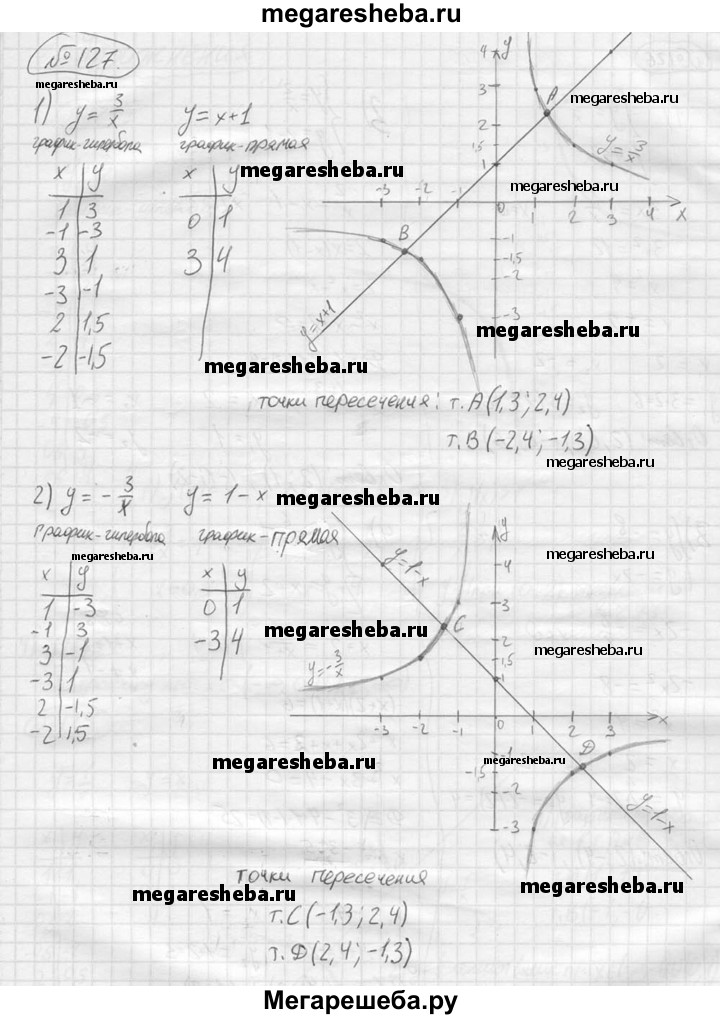 megaresheba.ru
№127.
megaresheba.ru
1) y = 3/x y = x+1
график-гипербола график-прямая
megaresheba.ru
x y x y
1 3 0 1
-1 -3 3 4
3 1
-3 -1
2 1,5
-2 -1,5
megaresheba.ru
y
4
3
2
1
A
megaresheba.ru
y = 3/x
megaresheba.ru
-3 -2 -1 0 1 2 3 4 x
B
-1
-1,5
-2
-3
y=x+1
megaresheba.ru
точки пересечения: т.A(1,3; 2,4)
т.B(-2,4; -1,3)
megaresheba.ru
2) y = - 3/x y = 1-x
megaresheba.ru
график-гипербола график-прямая
megaresheba.ru
x y x y
1 -3 0 1
-1 3 -3 4
3 -1
-3 1
2 -1,5
-2 1,5
megaresheba.ru
megaresheba.ru
y
4
3
2
1,5
1
y=1-x
megaresheba.ru
C
megaresheba.ru
y=-3/x
-3 -2 -1 0 1 2 3 x
D
megaresheba.ru
-1
-1,5
-2
-3
y=1-x
точки пересечения
megaresheba.ru
megaresheba.ru
т.C(-1,3; 2,4)
т.D(2,4; -1,3)
Мегарешеба.ру